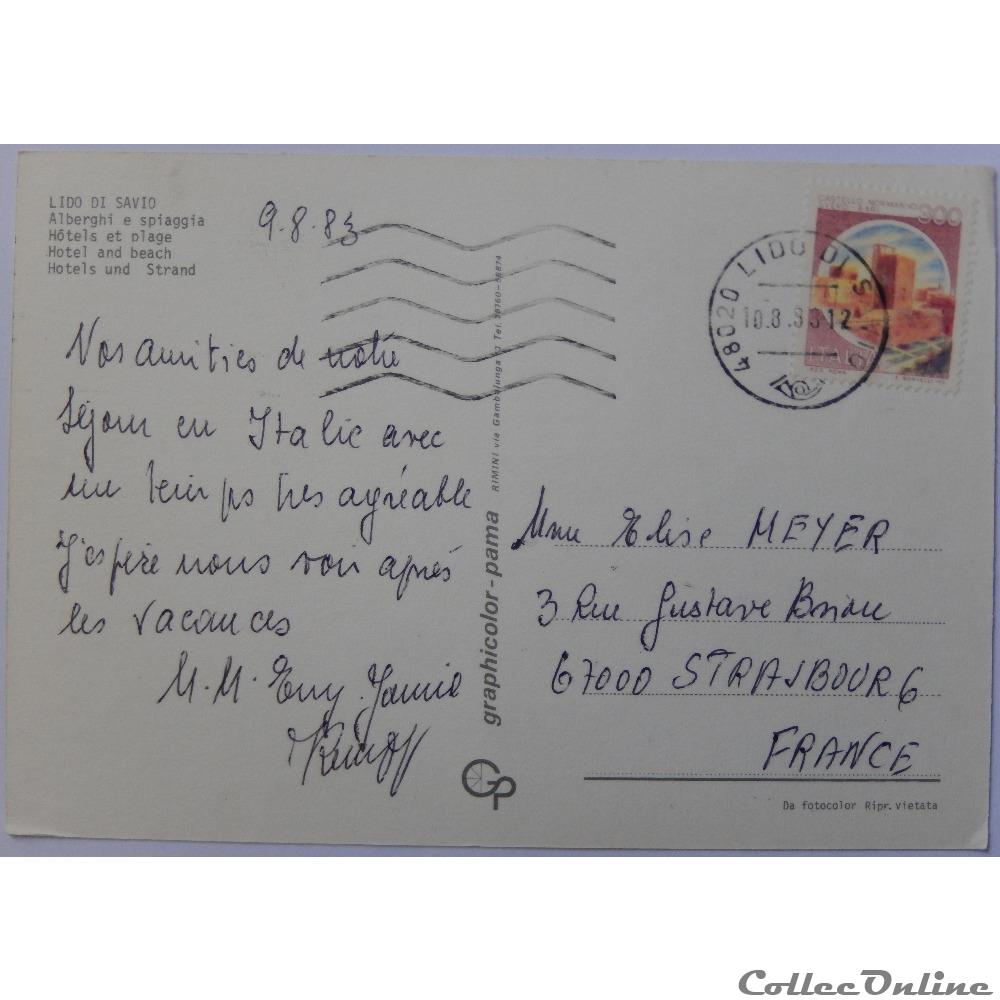 LIDO DI SAVIO
Alberghi e spiaggia
Hôtels et plage
Hotel and beach
Hotels und Strand
9.8.83
Nos amitiés de notre
Séjour en Italie avec
un temps très agréable
J'espère nous voir après
les vacances
M.M. Eny Jamie
graphicolor-pama RIMINI via Gambalunga
48020 LIDO DI S
10.8.83-12
300
ITALIA
Mme Elise MEYER
3 Rue Gustave Brion
67000 STRASBOURG
FRANCE
GP
Da fotocolor Ripr. vietata
CollecOnline